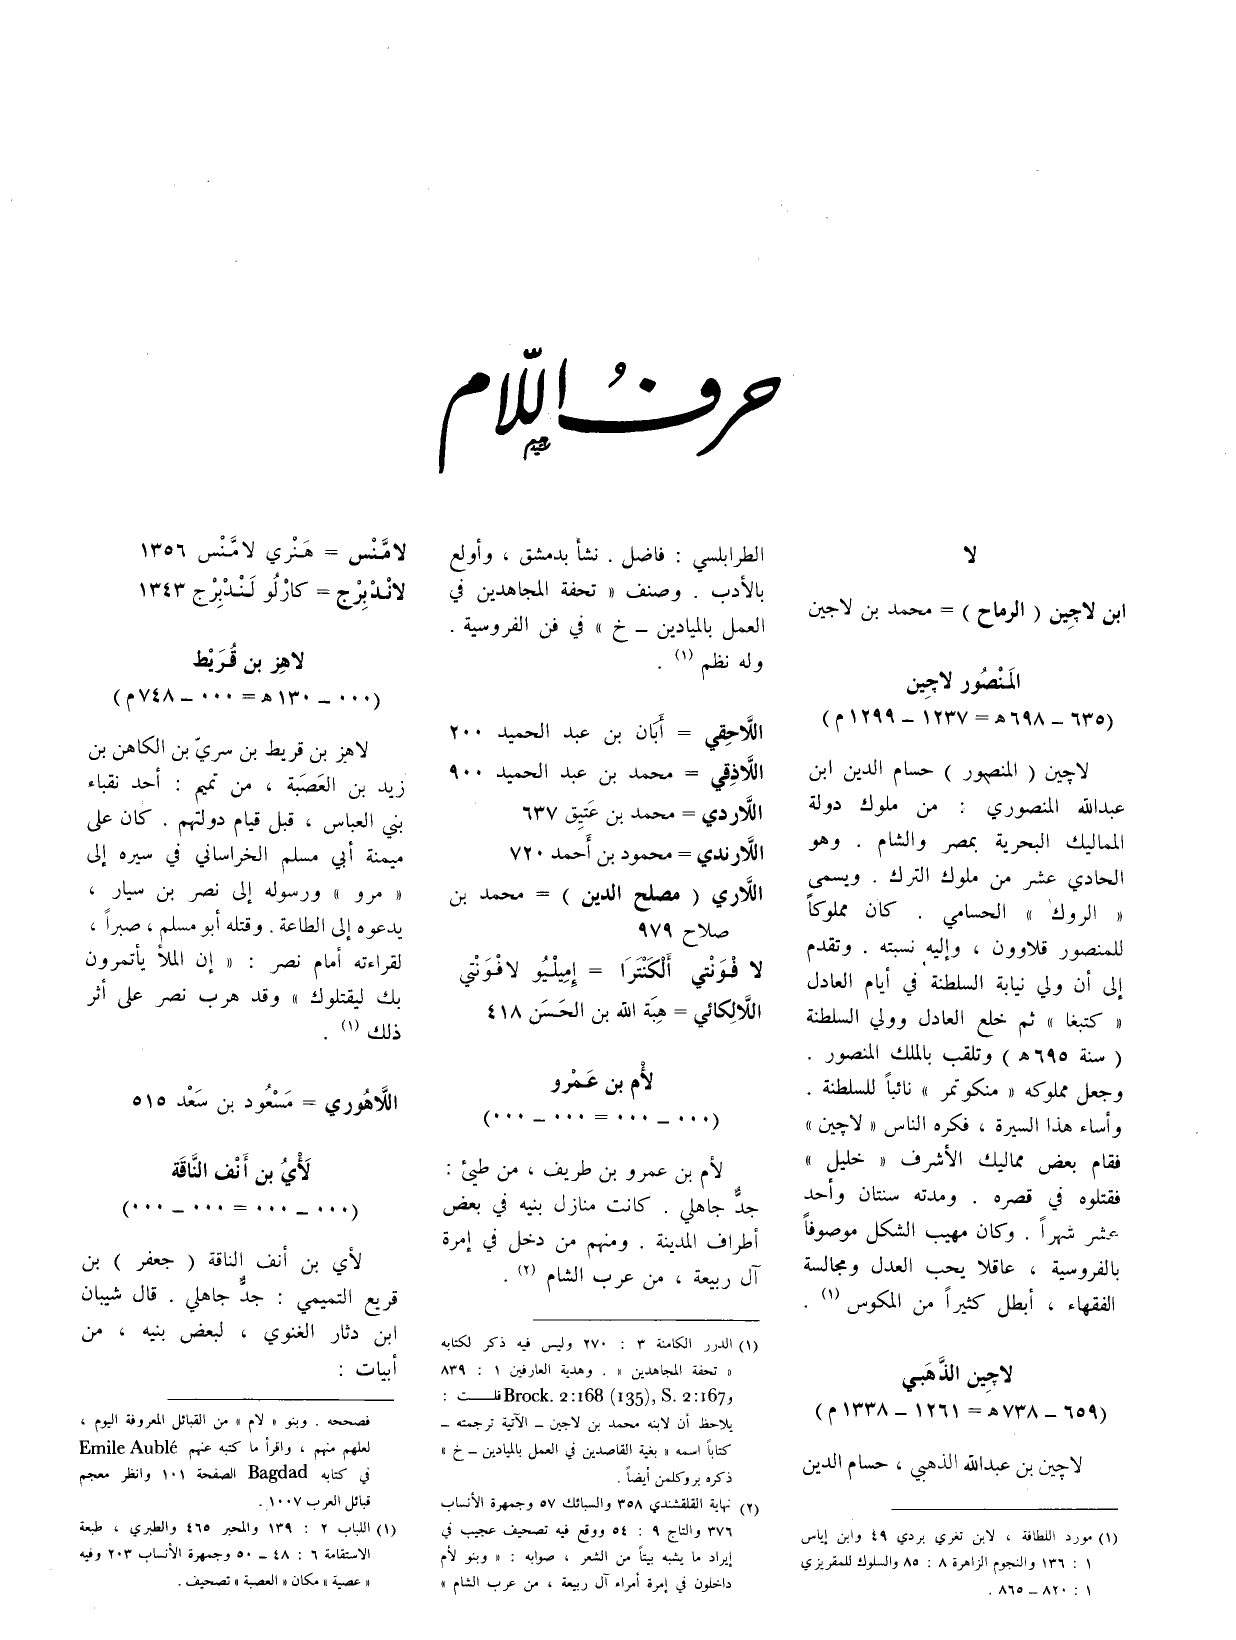 حرفُ اللّام
لا
ابن لاجِين ( الرماح ) = محمد بن لاجين
المَنْصُور لاجِين
(٦٣٥ – ٦٩٨ﻫ = ١٢٣٧ – ١٢٩٩ م)
لاجين ( المنصور ) حسام الدين ابن
عبدالله المنصوري : من ملوك دولة
المماليك البحرية بمصر والشام . وهو
الحادي عشر من ملوك الترك . ويسمى
« الروك » الحسامي . كان مملوكاً
للمنصور قلاوون ، وإليه نسبته . وتقدم
إلى أن ولي نيابة السلطنة في أيام العادل
« كتبغا » ثم خلع العادل وولي السلطنة
( سنة ٦٩٥ﻫ ) وتلقب بالملك المنصور .
وجعل مملوكه « منكوتمر » نائباً للسلطنة .
وأساء هذا السيرة ، فكره الناس « لاجين »
فقام بعض مماليك الأشرف « خليل »
فقتلوه في قصره . ومدته سنتان وأحد
عشر شهراً . وكان مهيب الشكل موصوفاً
بالفروسية ، عاقلا يحب العدل ومجالسة
الفقهاء ، أبطل كثيراً من المكوس (١) .
لاجِين الذَّهَبي
(٦٥٩ – ٧٣٨ﻫ = ١٢٦١ – ١٣٣٨ م)
لاجين بن عبدالله الذهبي ، حسام الدين
(١) مورد اللطافة ، لابن تغري بردي ٤٩ وابن إياس
١ : ١٣٦ والنجوم الزاهرة ٨ : ٨٥ والسلوك للمقريزي
١ : ٨٢٠ – ٨٦٥ .
الطرابلسي : فاضل . نشأ بدمشق ، وأولع
بالأدب . وصنف « تحفة المجاهدين في
العمل بالميادين – خ » في فن الفروسية .
وله نظم (١) .
اللَّاحِقي = أَبَان بن عبد الحميد ٢٠٠
اللَّاذِقي = محمد بن عبد الحميد ٩٠٠
اللَّاردي = محمد بن عَتِيق ٦٣٧
اللَّارندي = محمود بن أَحمد ٧٢٠
اللَّاري ( مصلح الدين ) = محمد بن
صلاح ٩٧٩
لا فْوَنْتي أَلْكَنْتَرَا = إِمِيلْيُو لافْوَنْتي
اللَّالِكائي = هِبَة الله بن الحَسَن ٤١٨
لأْم بن عَمْرو
(٠٠٠ – ٠٠٠ = ٠٠٠ – ٠٠٠)
لأم بن عمرو بن طريف ، من طيئ :
جدٌّ جاهلي . كانت منازل بنيه في بعض
أطراف المدينة . ومنهم من دخل في إمرة
آل ربيعة ، من عرب الشام (٢) .
(١) الدرر الكامنة ٣ : ٢٧٠ وليس فيه ذكر لكتابه
« تحفة المجاهدين » . وهدية العارفين ١ : ٨٣٩
وBrock. 2:168 (135), S. 2:167 قلت :
يلاحظ أن لابنه محمد بن لاجين – الآتية ترجمته –
كتاباً اسمه « بغية القاصدين في العمل بالميادين – خ »
ذكره بروكلمن أيضاً .
(٢) نهاية القلقشندي ٣٥٨ والسبائك ٥٧ وجمهرة الأنساب
٣٧٦ والتاج ٩ : ٥٤ ووقع فيه تصحيف عجيب في
إيراد ما يشبه بيتاً من الشعر ، صوابه : « وبنو لأم
داخلون في إمرة أمراء آل ربيعة ، من عرب الشام »
لامَّنْس = هَنْري لامَّنْس ١٣٥٦
لانْدبِرْج = كارْلُو لَنْدبِرْج ١٣٤٣
لاهِز بن قُرَيْط
(٠٠٠ – ١٣٠ﻫ = ٠٠٠ – ٧٤٨م)
لاهز بن قريط بن سريّ بن الكاهن بن
زيد بن العَصَبَة ، من تميم : أحد نقباء
بني العباس ، قبل قيام دولتهم . كان على
ميمنة أبي مسلم الخراساني في سيره إلى
« مرو » ورسوله إلى نصر بن سيار ،
يدعوه إلى الطاعة . وقتله أبو مسلم ، صبراً ،
لقراءته أمام نصر : « إن الملأ يأتمرون
بك ليقتلوك » وقد هرب نصر على أثر
ذلك (١) .
اللَّاهُوري = مَسْعُود بن سَعْد ٥١٥
لَأْيُ بن أَنْف النَّاقَة
(٠٠٠ – ٠٠٠ = ٠٠٠ – ٠٠٠)
لأي بن أنف الناقة ( جعفر ) بن
قريع التميمي : جدٌّ جاهلي . قال شيبان
ابن دثار الغنوي ، لبعض بنيه ، من
أبيات :
فصححه . وبنو « لام » من القبائل المعروفة اليوم ،
لعلهم منهم ، واقرأ ما كتبه عنهم Emile Aublé
في كتابه Bagdad الصفحة ١٠١ وانظر معجم
قبائل العرب ١٠٠٧ .
(١) اللباب ٢ : ١٣٩ والمحبر ٤٦٥ والطبري ، طبعة
الاستقامة ٦ : ٤٨ – ٥٠ وجمهرة الأنساب ٢٠٣ وفيه
« عصية » مكان « العصبة » تصحيف .